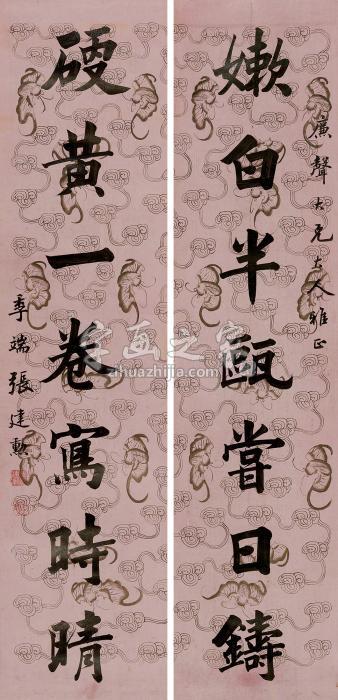 廣聲大兄大人雅正
嫰白半甌嘗日鑄
硬黃一卷寫時晴
季端張建勳
字画之家
zihuazhijia.com